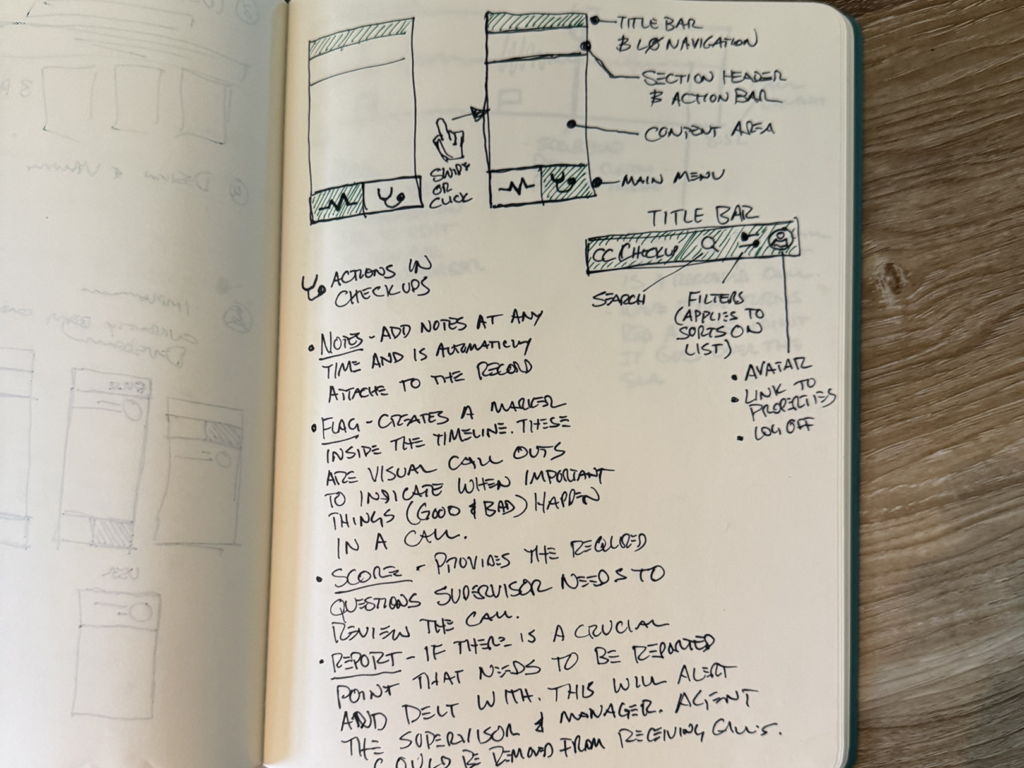 TITLE BAR
& LØ NAVIGATION
SECTION HEADER
& ACTION BAR
CONTENT AREA
MAIN MENU
SWIPE
OR
CLICK
TITLE BAR
CC CHECKUP
SEARCH
FILTERS
(APPLIES TO
SORTS ON
LIST)
• AVATAR
• LINK TO
PROPERTIES
• LOG OFF
ACTIONS IN
CHECKUPS
• NOTES - ADD NOTES AT ANY
TIME AND IS AUTOMATICLY
ATTACHE TO THE RECORD
• FLAG - CREATES A MARKER
INSIDE THE TIMELINE. THESE
ARE VISUAL CALL OUTS
TO INDICATE WHEN IMPORTANT
THINGS (GOOD & BAD) HAPPEN
IN A CALL.
• SCORE - PROVIDES THE REQUIRED
QUESTIONS SUPERVISOR NEEDS TO
REVIEW THE CALL.
• REPORT - IF THERE IS A CRUCIAL
POINT THAT NEEDS TO BE REPORTED
AND DELT WITH. THIS WILL ALERT
THE SUPERVISOR & MANAGER. AGENT
COULD BE REMOVED FROM RECEIVING CALLS.
USER